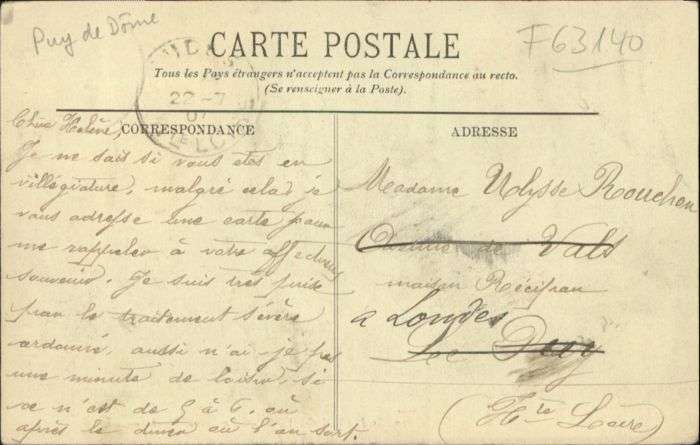 Puy de Dôme
F63140
CARTE POSTALE
Tous les Pays étrangers n'acceptent pas la Correspondance au recto.
(Se renseigner à la Poste).
22-7
07
CORRESPONDANCE
ADRESSE
Chère Hélène,
Je ne sais si vous êtes en
villégiature, malgré cela, je
vous adresse une carte pour
me rappeler à votre affectueux
souvenir. Je suis très prise
par le traitement sévère
ordonné, aussi n'ai-je pas
une minute de loisir, si
ce n'est de 5 à 6, ou
après le dîner où l'on sort.
Madame Ulysse Rouchon
de Vals
maison Récipon
à Loudes
Le Puy
(Hte Loire)